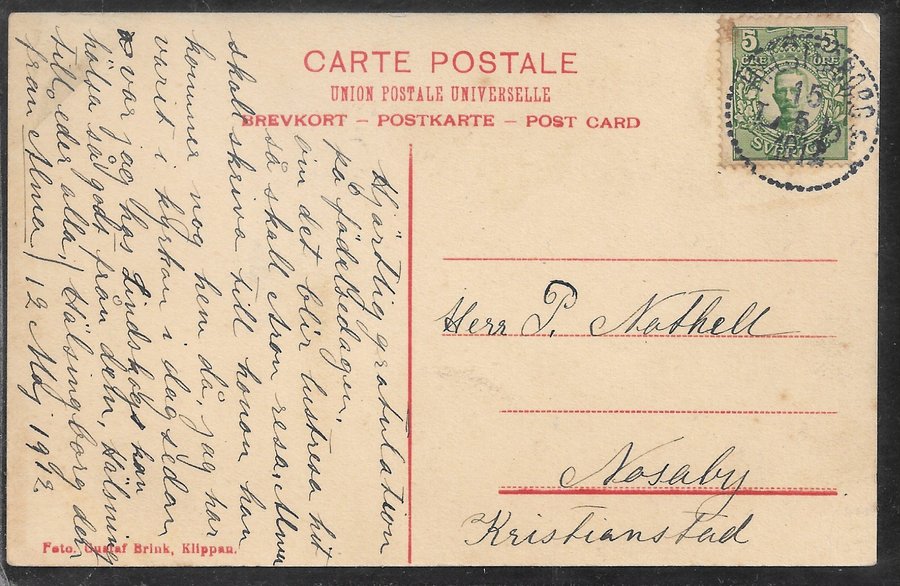 CARTE POSTALE
UNION POSTALE UNIVERSELLE
BREVKORT – POSTKARTE – POST CARD
5 5
ÖRE ÖRE
SVERIGE
15
5
Hjärtlig gratulation
på födelsedagen,
om det blir lustresa hit
så skall Aron resa. Alma
skall skriva till honom han
kommer nog hem då, jag har
varit i kyrkan i dag sedan
var jag hos Lindskogs kan
hälsa så godt från dem, Hälsning
till eder alla, / Hälsingborg den
från Alma / 12 Maj 1912
Herr P. Nothell
Nosaby
Kristianstad
Foto. Gustaf Brink, Klippan.